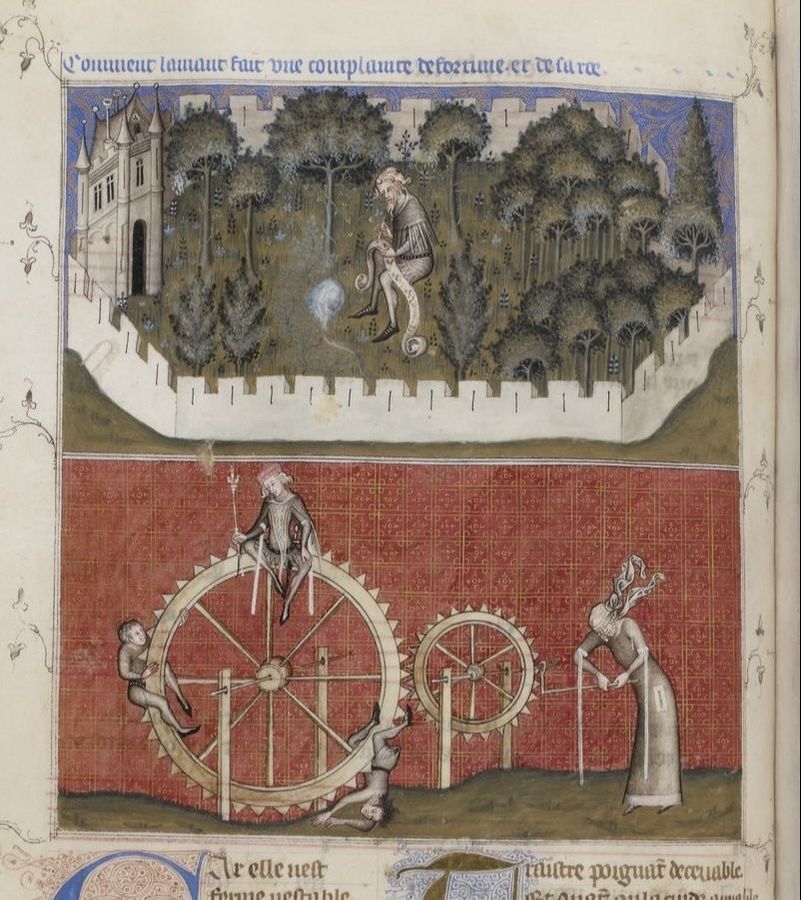 Comment lamant fait une complainte de fortune et de sa roe
Car elle nest
ferme nestable
Traistre poignāt deceuable